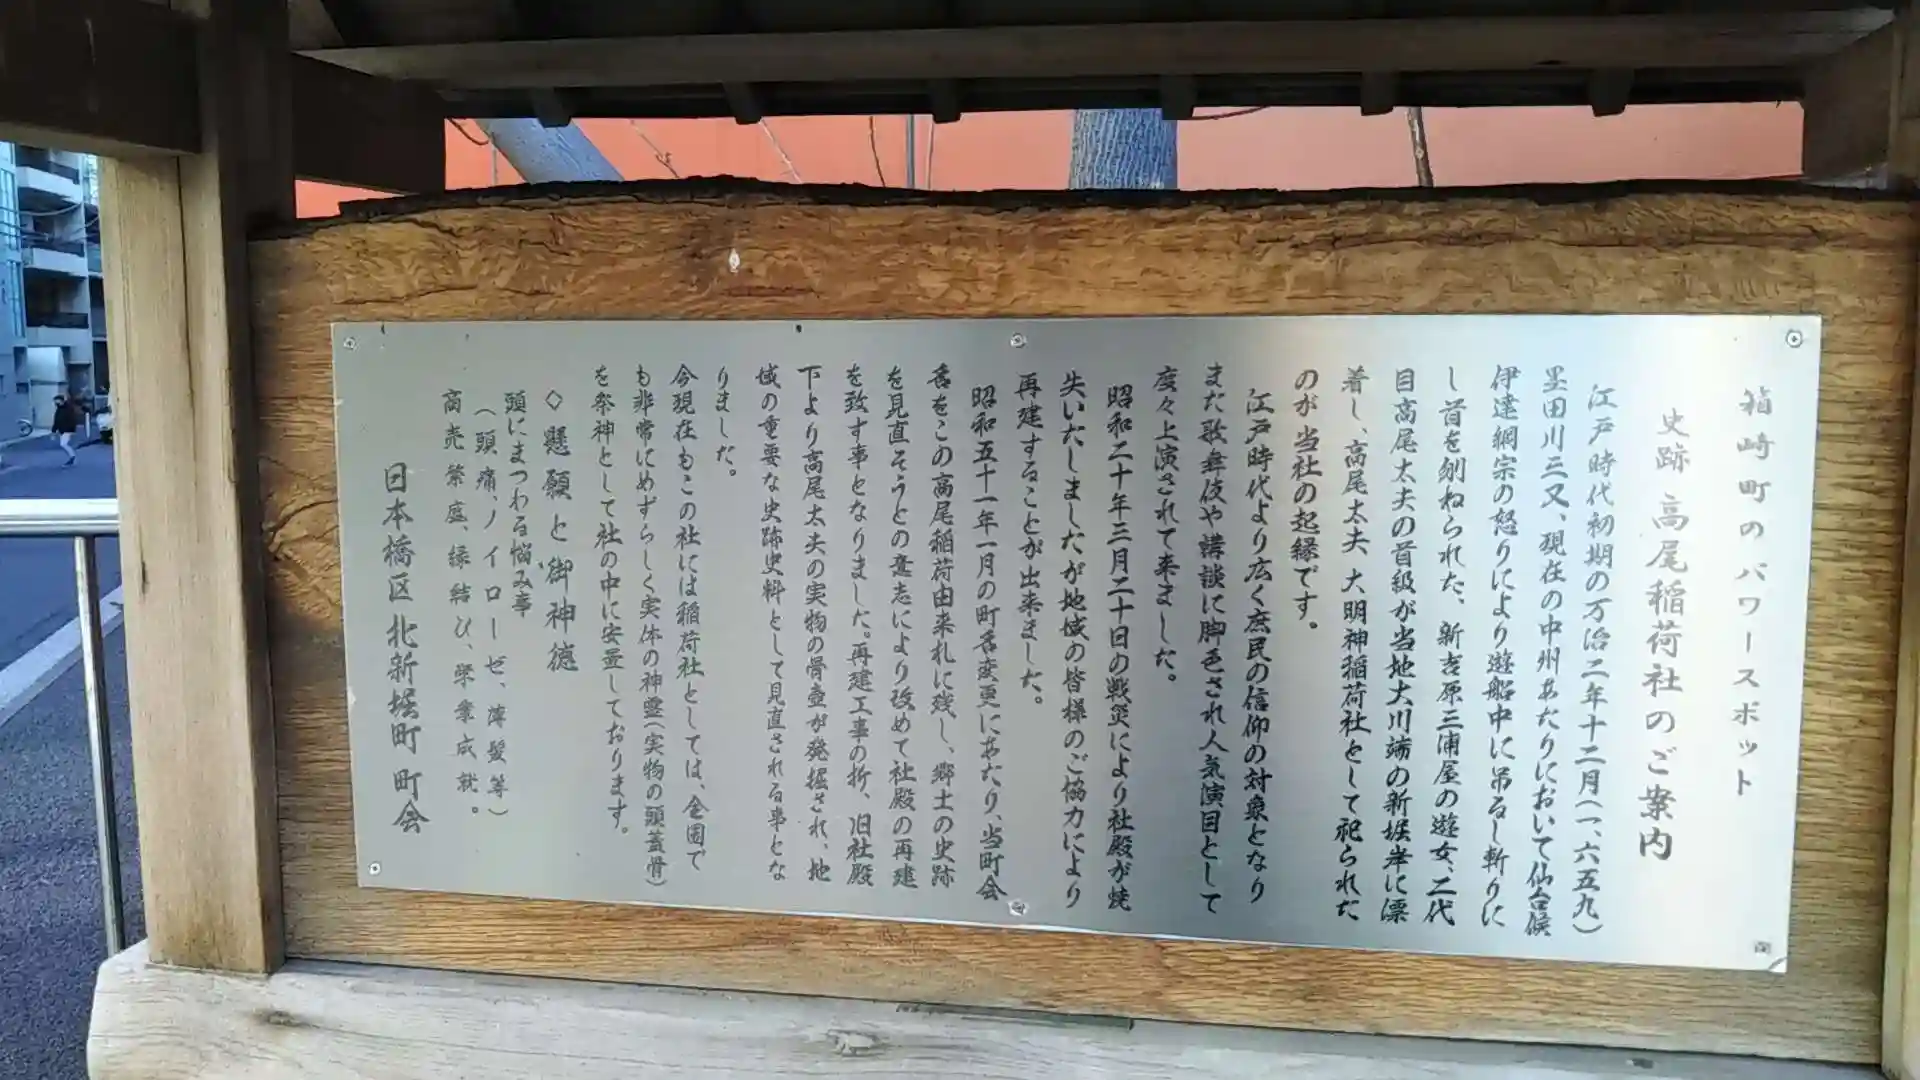 箱崎町のパワースポット
史跡 高尾稲荷社のご案内
江戸時代初期の万治二年十二月(一、六五九)
墨田川三又、現在の中州あたりにおいて仙台候
伊達綱宗の怒りにより遊船中に吊るし斬りに
し首を刎ねられた、新吉原三浦屋の遊女、二代
目高尾太夫の首級が当地大川端の新堀岸に漂
着し、高尾太夫、大明神稲荷社として祀られた
のが当社の起縁です。
江戸時代より広く庶民の信仰の対象となり
また歌舞伎や講談に脚色され人気演目として
度々上演されて来ました。
昭和二十年三月二十日の戦災により社殿が焼
失いたしましたが地域の皆様のご協力により
再建することが出来ました。
昭和五十一年一月の町名変更にあたり、当町会
名をこの高尾稲荷由来札に残し、郷土の史跡
を見直そうとの意志により改めて社殿の再建
を致す事となりました。再建工事の折、旧社殿
下より高尾太夫の実物の骨壺が発掘され、地
域の重要な史跡史料として見直される事とな
りました。
今現在もこの社には稲荷社としては、全国で
も非常にめずらしく実体の神霊(実物の頭蓋骨)
を祭神として社の中に安置しております。
◇懸願と御神徳
頭にまつわる悩み事
(頭痛、ノイローゼ、薄髪等)
商売繁盛、縁結び、学業成就。
日本橋区北新堀町町会